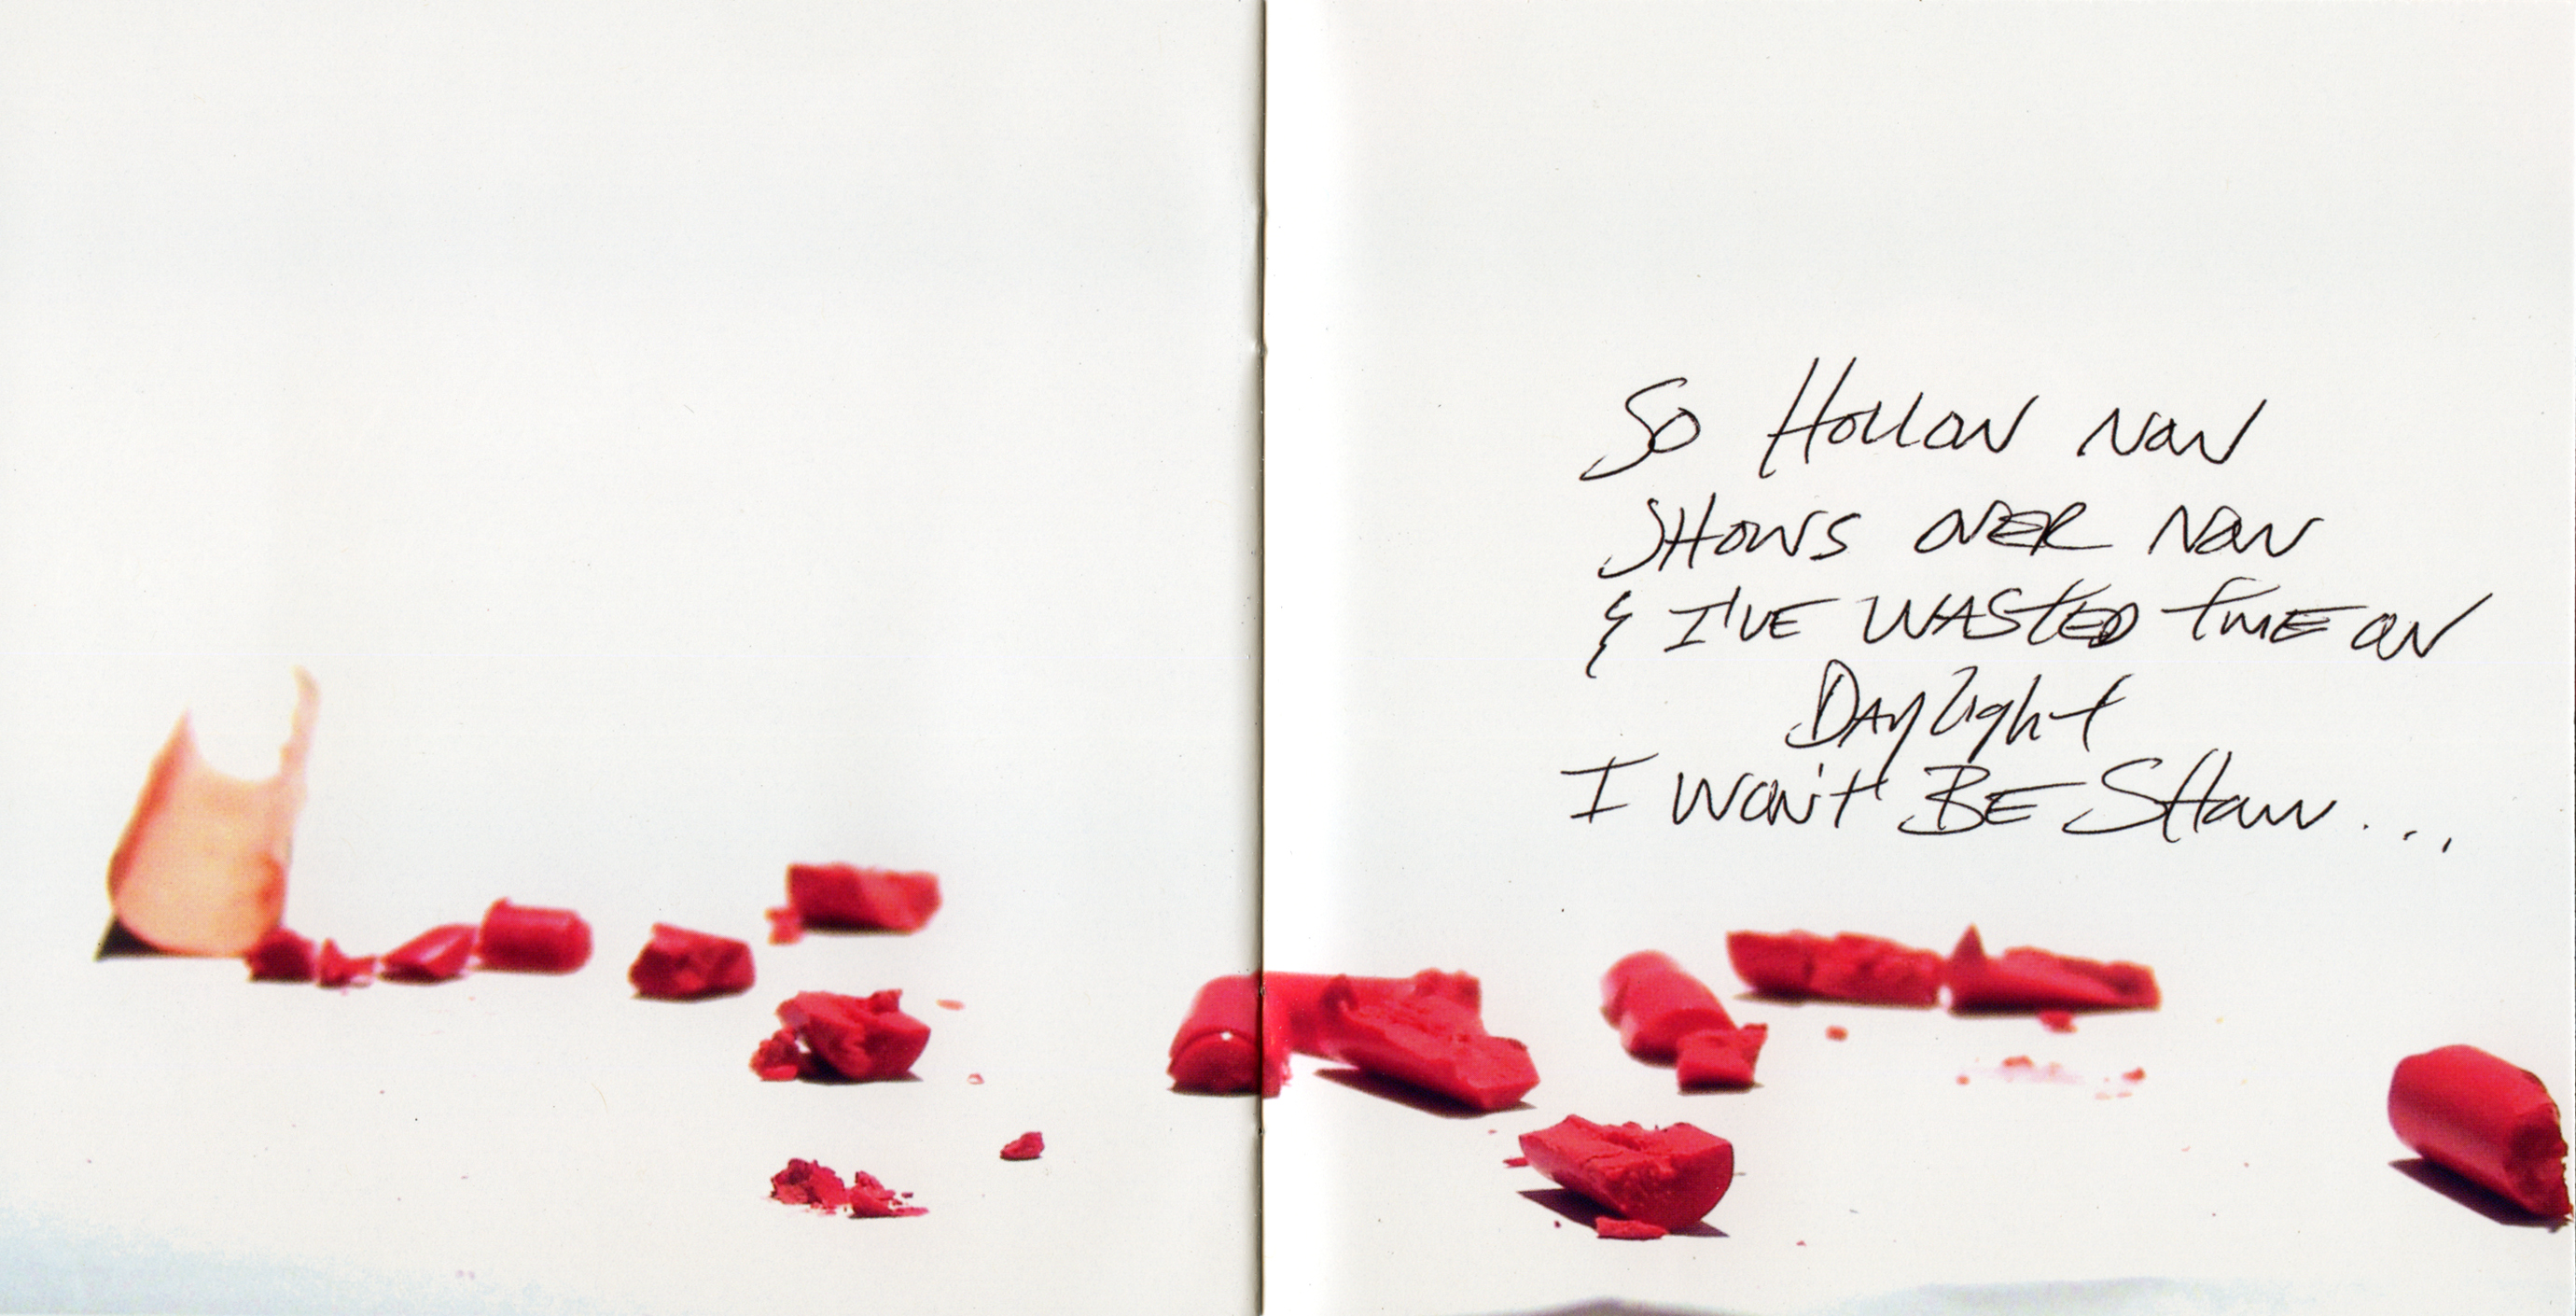 So Hollow Now
SHOWS OVER NOW
& I'VE WASTED TIME ON
Daylight
I WON'T BE SHOWN...